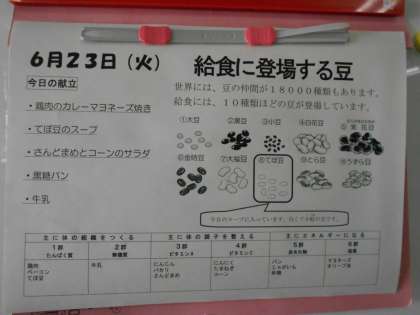 6月23日（火）
給食に登場する豆
今日の献立
世界には、豆の仲間が１８０００種類もあります。
給食には、１０種類ほどの豆が登場しています。
・鶏肉のカレーマヨネーズ焼き
・てぼ豆のスープ
・さんどまめとコーンのサラダ
・黒糖パン
・牛乳
①大豆
②黒豆
③小豆
④白花豆
⑤紫花豆
⑥金時豆
⑦大福豆
⑧てぼ豆
⑨とら豆
⑩うずら豆
今日のスープに入っています。白くて小粒の豆です。
主に体の組織をつくる
主に体の調子を整える
主にエネルギーになる
1群
2群
3群
4群
5群
6群
たんぱく質
無機質
ビタミンA
ビタミンC
炭水化物
脂質
鶏肉
ベーコン
てぼ豆
牛乳
にんじん
パセリ
さんどまめ
にんにく
たまねぎ
コーン
パン
じゃがいも
砂糖
マヨネーズ
オリーブ油